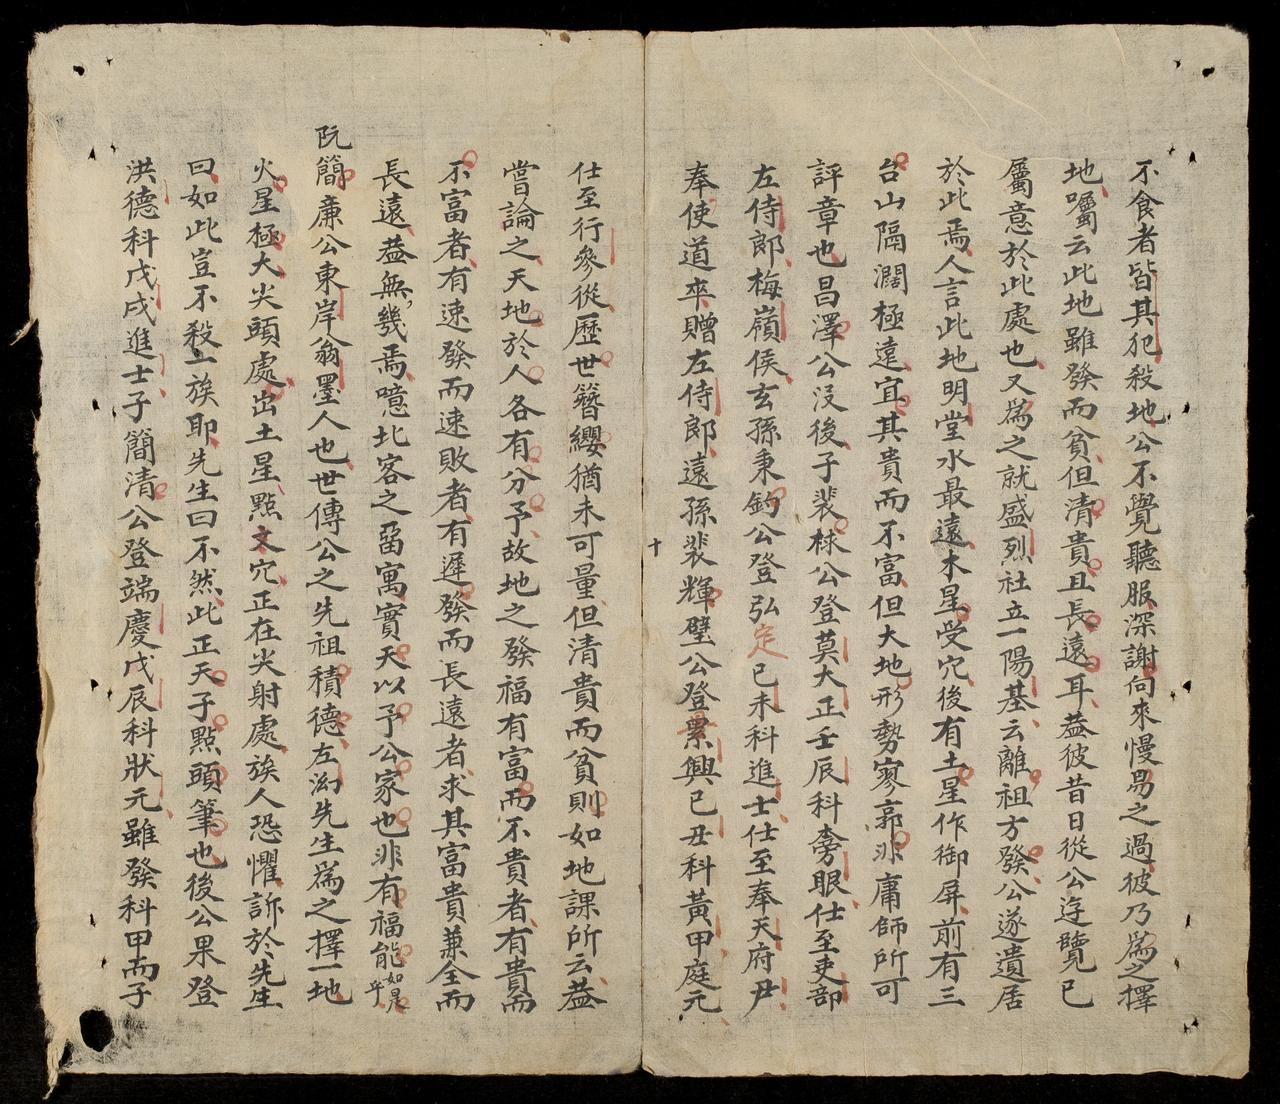 不食者皆其犯殺地公不覺聽服深謝向來慢昜之過彼乃爲之擇
地囑云此地雖發而貧但清貴且長遠耳葢彼昔日從公遊覽已
屬意於此處也又爲之就盛烈社立一陽基云離祖方發公遂遺居
於此焉人言此地明堂水最遠木星受穴後有土星作御屏前有三
台山隔濶極遠宜其貴而不富但大地形勢寥郭非庸師所可
評章也昌澤公没後子裴棣公登莫大正壬辰科榜眼仕至吏部
左侍郎梅嶺侯玄孫秉鈞公登弘定已未科進士仕至奉天府尹
奉使道卒贈左侍郎遠孫裴輝璧公登景興已丑科黃甲庭元
十
仕至行參從歷世簪纓猶未可量但清貴而貧則如地課所云葢
嘗論之天地於人各有分予故地之發福有富而不貴者有貴而
不富者有速發而速敗者有遲發而長遠者求其富貴兼全而
長遠葢無幾焉噫北客之畱寓實天以予公家也非有福能如是乎
阮簡廉公東岸翁墨人也世傳公之先祖積德左泑先生爲之擇一地
火星極大尖頭處出土星點文穴正在尖射處族人恐懼訴於先生
曰如此豈不殺一族耶先生曰不然此正天子點頭筆也後公果登
洪德科戊戌進士子簡清公登端慶戊辰科狀元雖發科甲而子